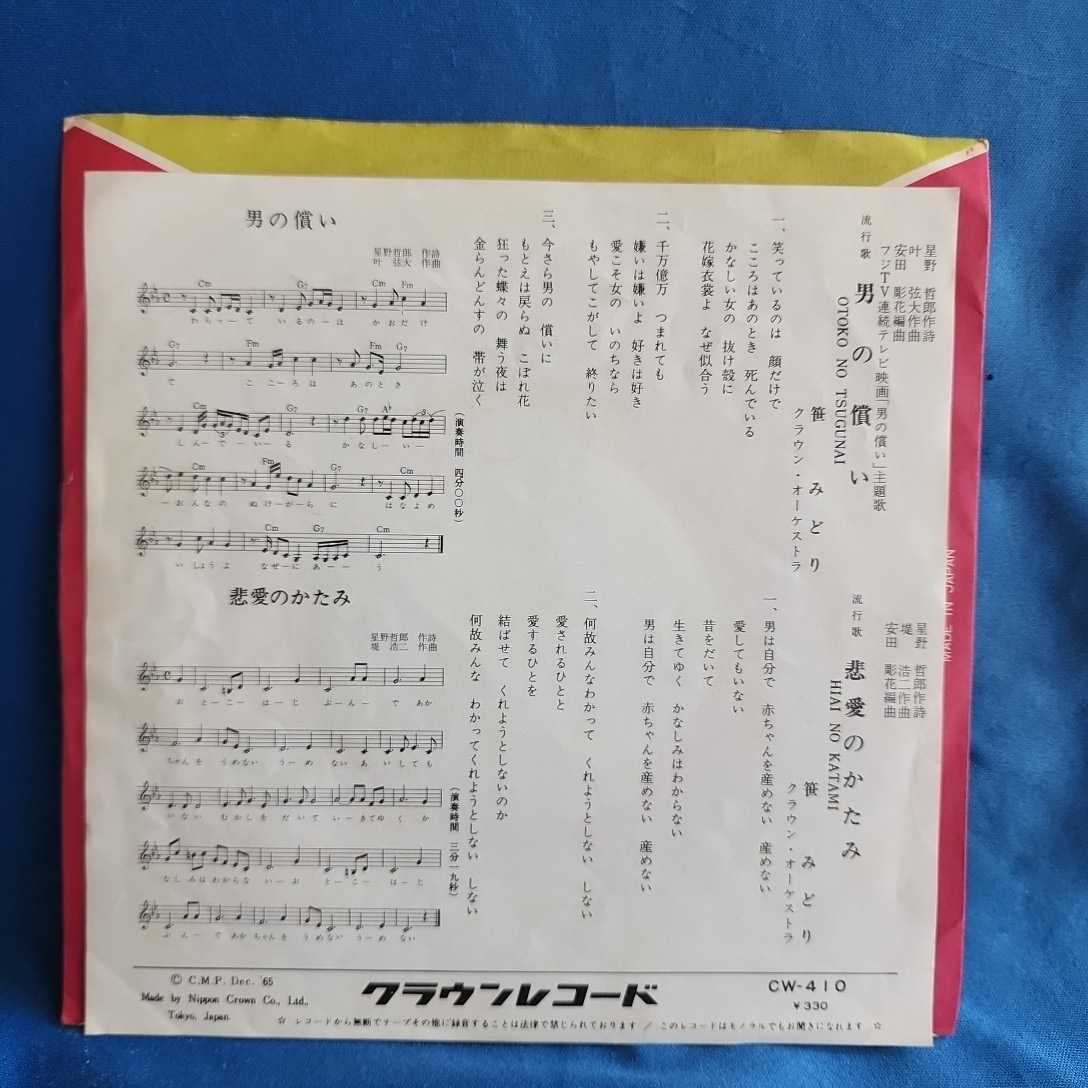 星野 哲郎作詩
叶 弦大作曲
安田 彫花編曲
フジTV連続テレビ映画「男の償い」主題歌
流行歌
男の償い
OTOKO NO TSUGUNAI
笹 みどり
クラウン・オーケストラ
一、笑っているのは 顔だけで
こころはあのとき 死んでいる
かなしい女の 抜け殻に
花嫁衣裳よ なぜ似合う
二、千万億万 つまれても
嫌いは嫌いよ 好きは好き
愛こそ女の いのちなら
もやしてこがして 終りたい
三、今さら男の 償いに
もとえは戻らぬ こぼれ花
狂った蝶々の 舞う夜は
金らんどんすの 帯が泣く
(演奏時間 四分〇〇秒)
男の償い
星野哲郎 作詩
叶 弦大 作曲
Cm G7 Cm Fm
わらーって いるのーは かおだけ
G7 Fm Fm G7
で こころは あのとき
Cm G7 G7 A♭
しんーでーいーる かなしーいー
Cm Fm G7 Cm
ーおんなの ぬけーがーらに はなよめ
Cm G7 Cm
いしょうよ なぜーにあーーう
星野 哲郎作詩
堤 浩二作曲
安田 彫花編曲
流行歌
悲愛のかたみ
HIAI NO KATAMI
笹 みどり
クラウン・オーケストラ
一、男は自分で 赤ちゃんを産めない 産めない
愛してもいない
昔をだいて
生きてゆく かなしみはわからない
男は自分で 赤ちゃんを産めない 産めない
二、何故みんなわかって くれようとしない しない
愛されるひとと
愛するひとを
結ばせて くれようとしないのか
何故みんな わかってくれようとしない しない
(演奏時間 三分一九秒)
悲愛のかたみ
星野哲郎 作詩
堤 浩二 作曲
おとーこーはーじ ぶーんーで あか
ちゃんを うめない うーめ ないあ いしても
いない むかしを だいて いーきてゆく か
なしみは わからな いーお とーこーはーじ
ぶんーであかちゃんを うめないうーめ ない
MADE IN JAPAN
© C.M.P. Dec. '65
Made by Nippon Crown Co., Ltd.,
Tokyo, Japan.
クラウンレコード
CW-410
¥330
☆ レコードから無断でテープその他に録音することは法律で禁じられております / このレコードはモノラルでもお聞きになれます ☆